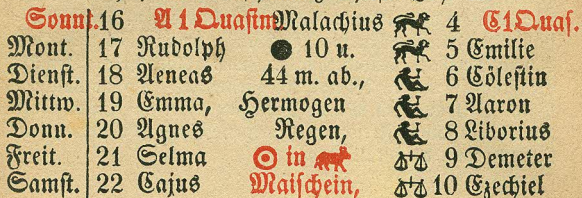 Sonnt. 16 A 1 Quasim Malachius 4 C 1 Quas.
Mont. 17 Rudolph 10 u. 5 Emilie
Dienst. 18 Aeneas 44 m. ab., 6 Cölestin
Mittw. 19 Emma, Hermogen 7 Aaron
Donn. 20 Agnes Regen, 8 Liborius
Freit. 21 Selma in 9 Demeter
Samst. 22 Cajus Maischein, 10 Ezechiel